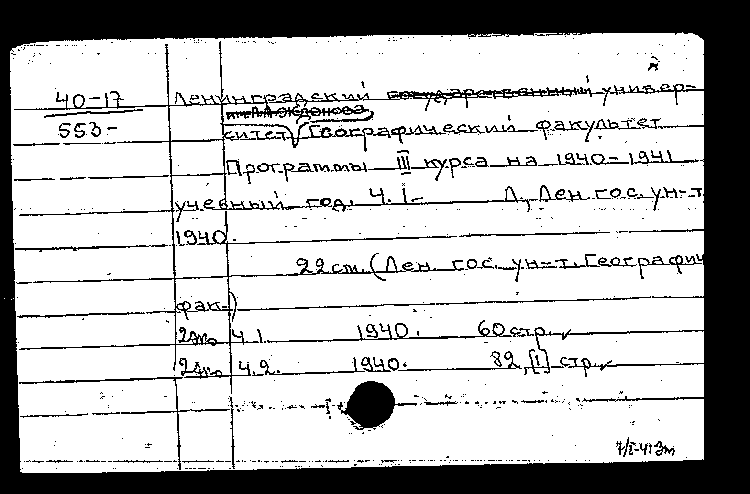 40-17
553-
Ленинградский государственный универ-
им. А.А. Жданова
ситет Географический факультет
Программы III курса на 1940-1941
учебный год. Ч. I- Л., Лен. гос. ун-т.
1940.
22 см. (Лен. гос. ун-т. Географич
фак-)
Ч. 1. 1940. 60 стр.
Ч. 2. 1940. 82, [1] стр.